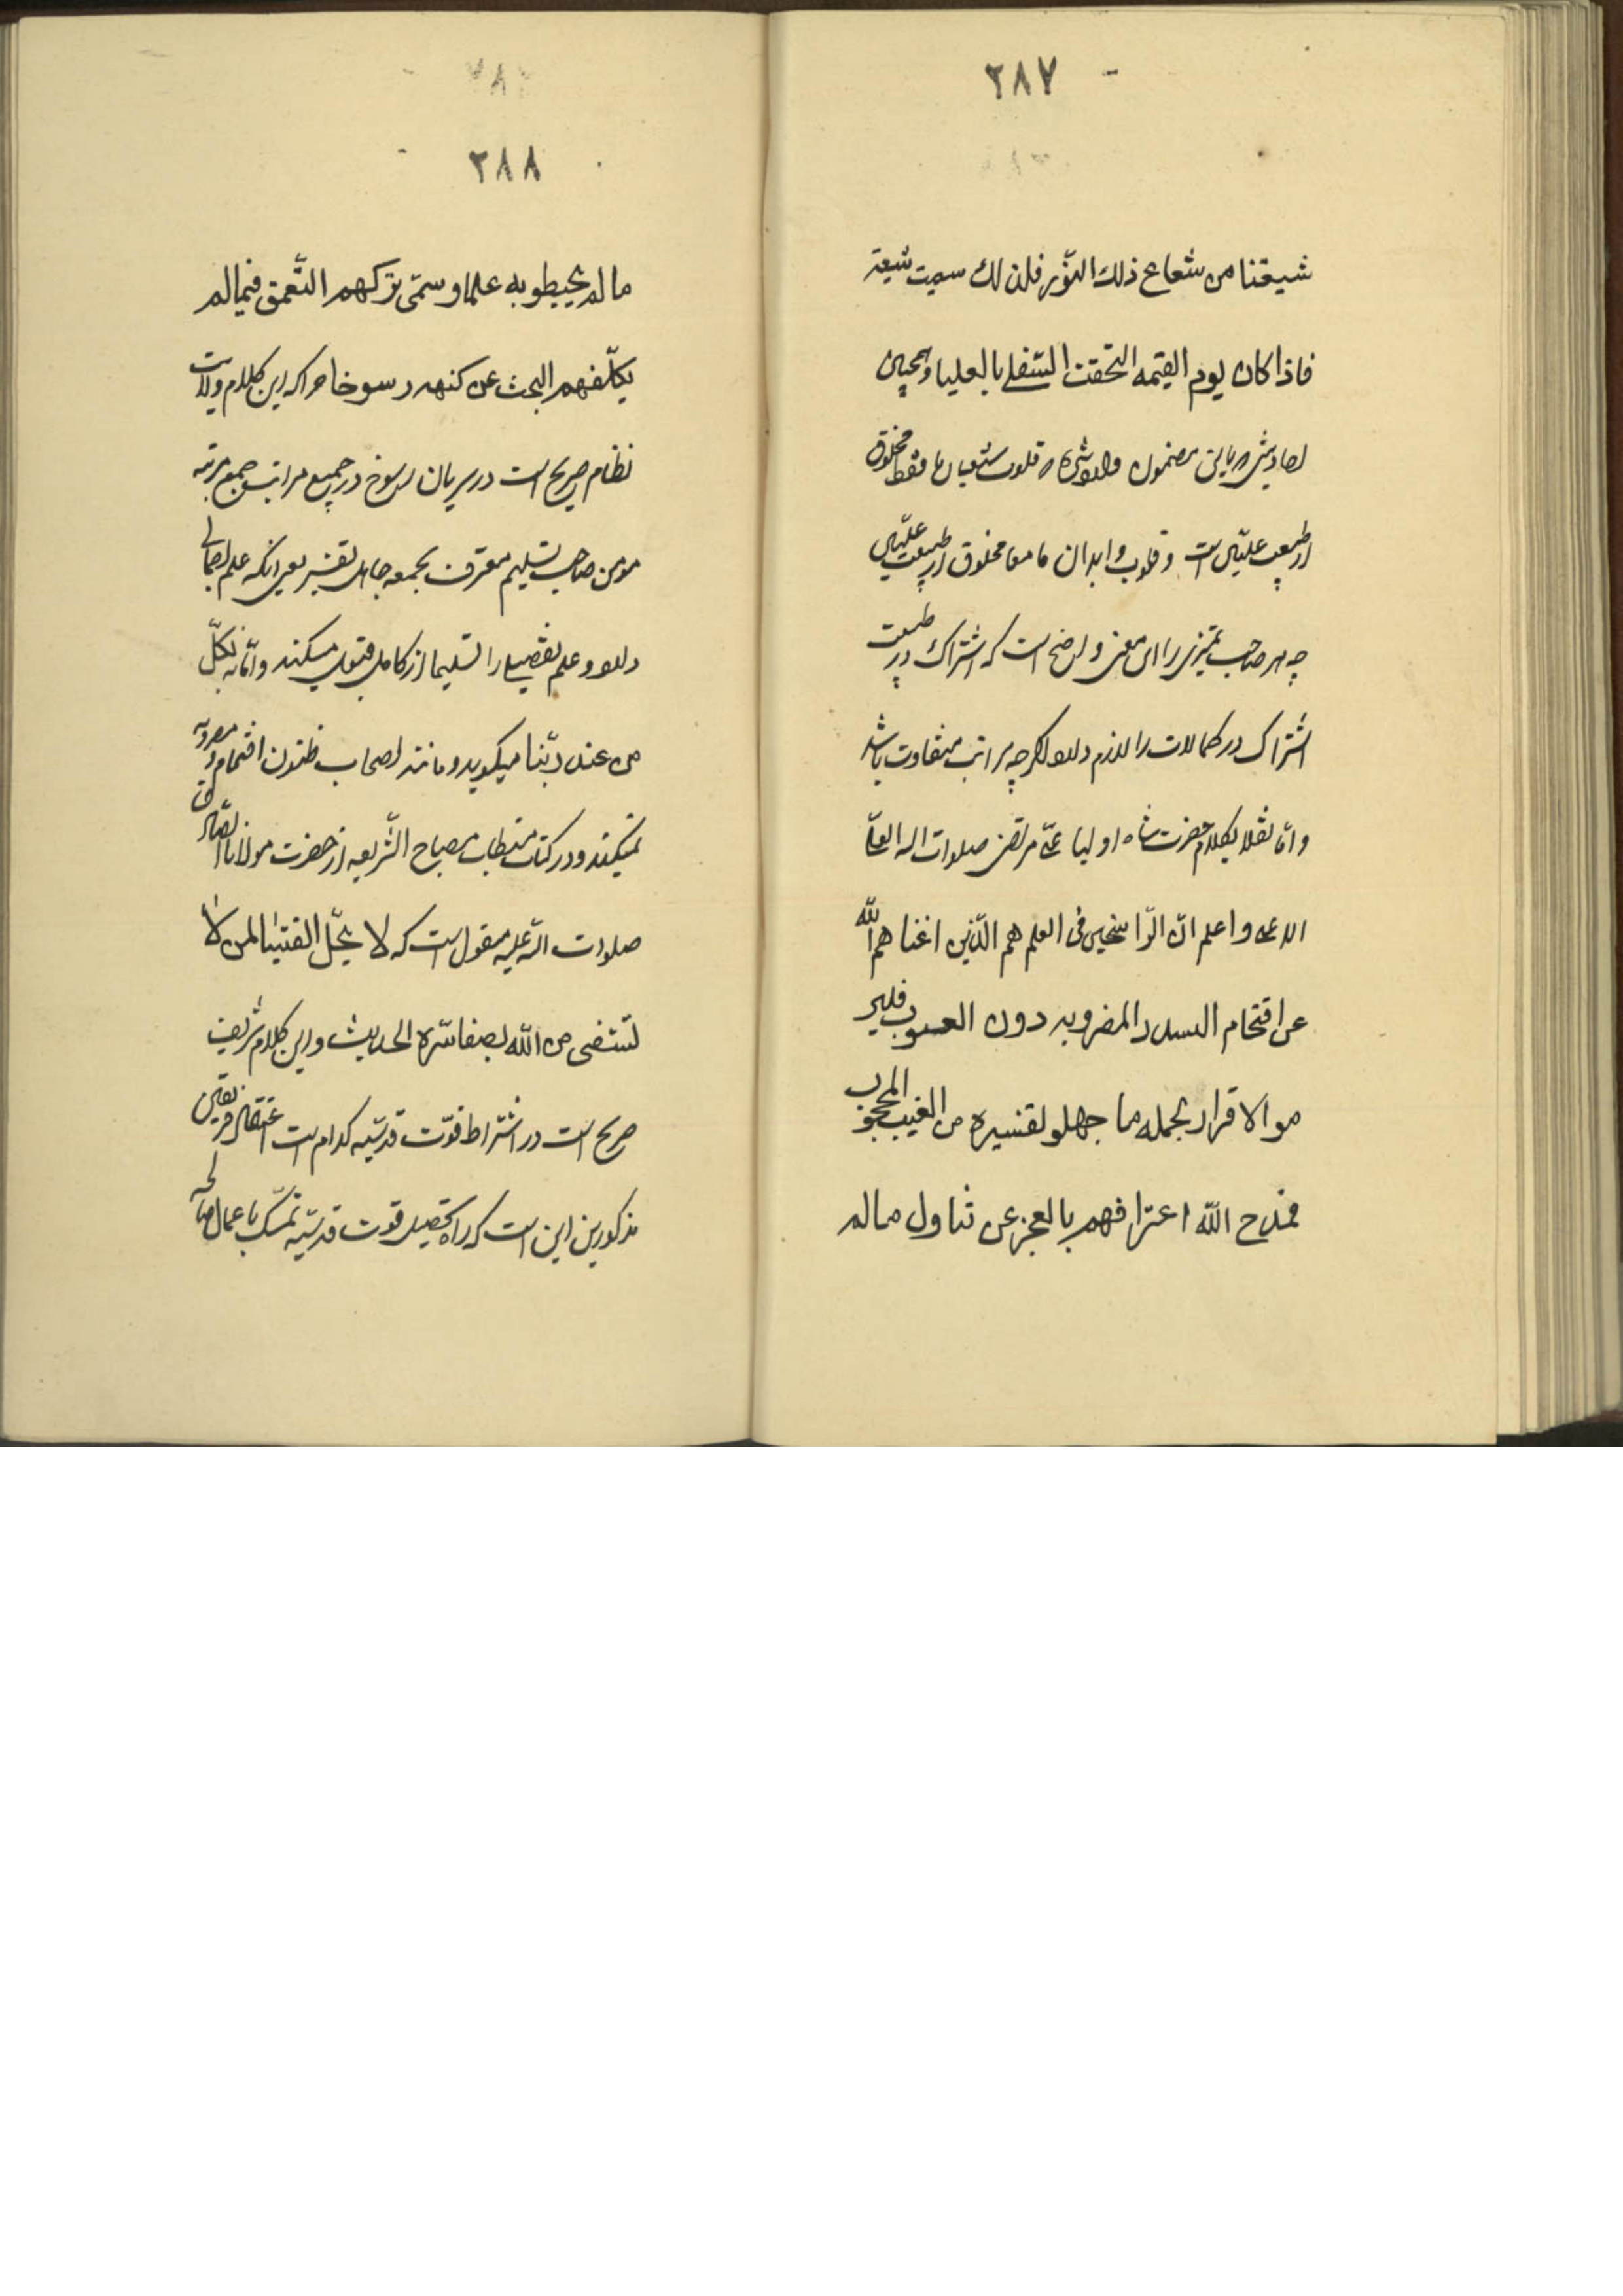 ٢٨٧
شيعتنا من شعاع ذلك النّور فلذلك سميت شيعة
فاذا كان يوم القيمه التحقت السّفلى بالعليا و همچنين
احاديث مضمون قلوب شيعيان ما فقط مخلوق
از طينت علّيين است و قلوب و ابدان ما معا مخلوق از طينت علّيين
چه هر صاحب تميزى را اين معنى واضح است كه اشتراك در طينت
اشتراك در كمالات را لازم دارد اگرچه مراتب متفاوت باشد
و امّا نقلا بكلام حضرت شاه اوليا على مرتضى صلوات الله العلى
الاعلى و اعلم انّ الرّاسخين فى العلم هم الّذين اغناهم الله
عن اقتحام السدد المضروبه دون الغيوب
الاقرار بجمله ما جهلو تفسيره من الغيب المحجوب
فمدح الله اعترافهم بالعجز عن تناول مالم
٢٨٨
مالم يحيطو به علما و سمّى تركهم التّعمق فيمالم
يكلّفهم البحث عن كنهه رسوخا چراكه اين كلام ولايت
نظام صريح است در سريان رسوخ در جميع مراتب جميع مرتبه
مؤمن صاحب تسليم معترف بجمعه جاهل تفسير يعنى آنكه علم اجمالى
دارد و علم تفصيلى را تسليما از كامل قبول ميكند و آمنّا به كلّ
من عند ربّنا ميگويد و مانند اصحاب ظنون اقتحام مضروبه
نميكند و در كتاب مصباح الشّريعه از حضرت مولانا الصّادق
صلوات الله عليه منقول است كه لا يحلّ الفتيا لمن لا
يستفتى من الله بصفاء سره الحديث و اين كلام شريف
صريح است در اشتراط قوّت قدسيّه كدام است اعتقاد فريقين
مذكورين اين است كه راه تحصيل قوت قدسيّه تمسّك باعمال صالحه